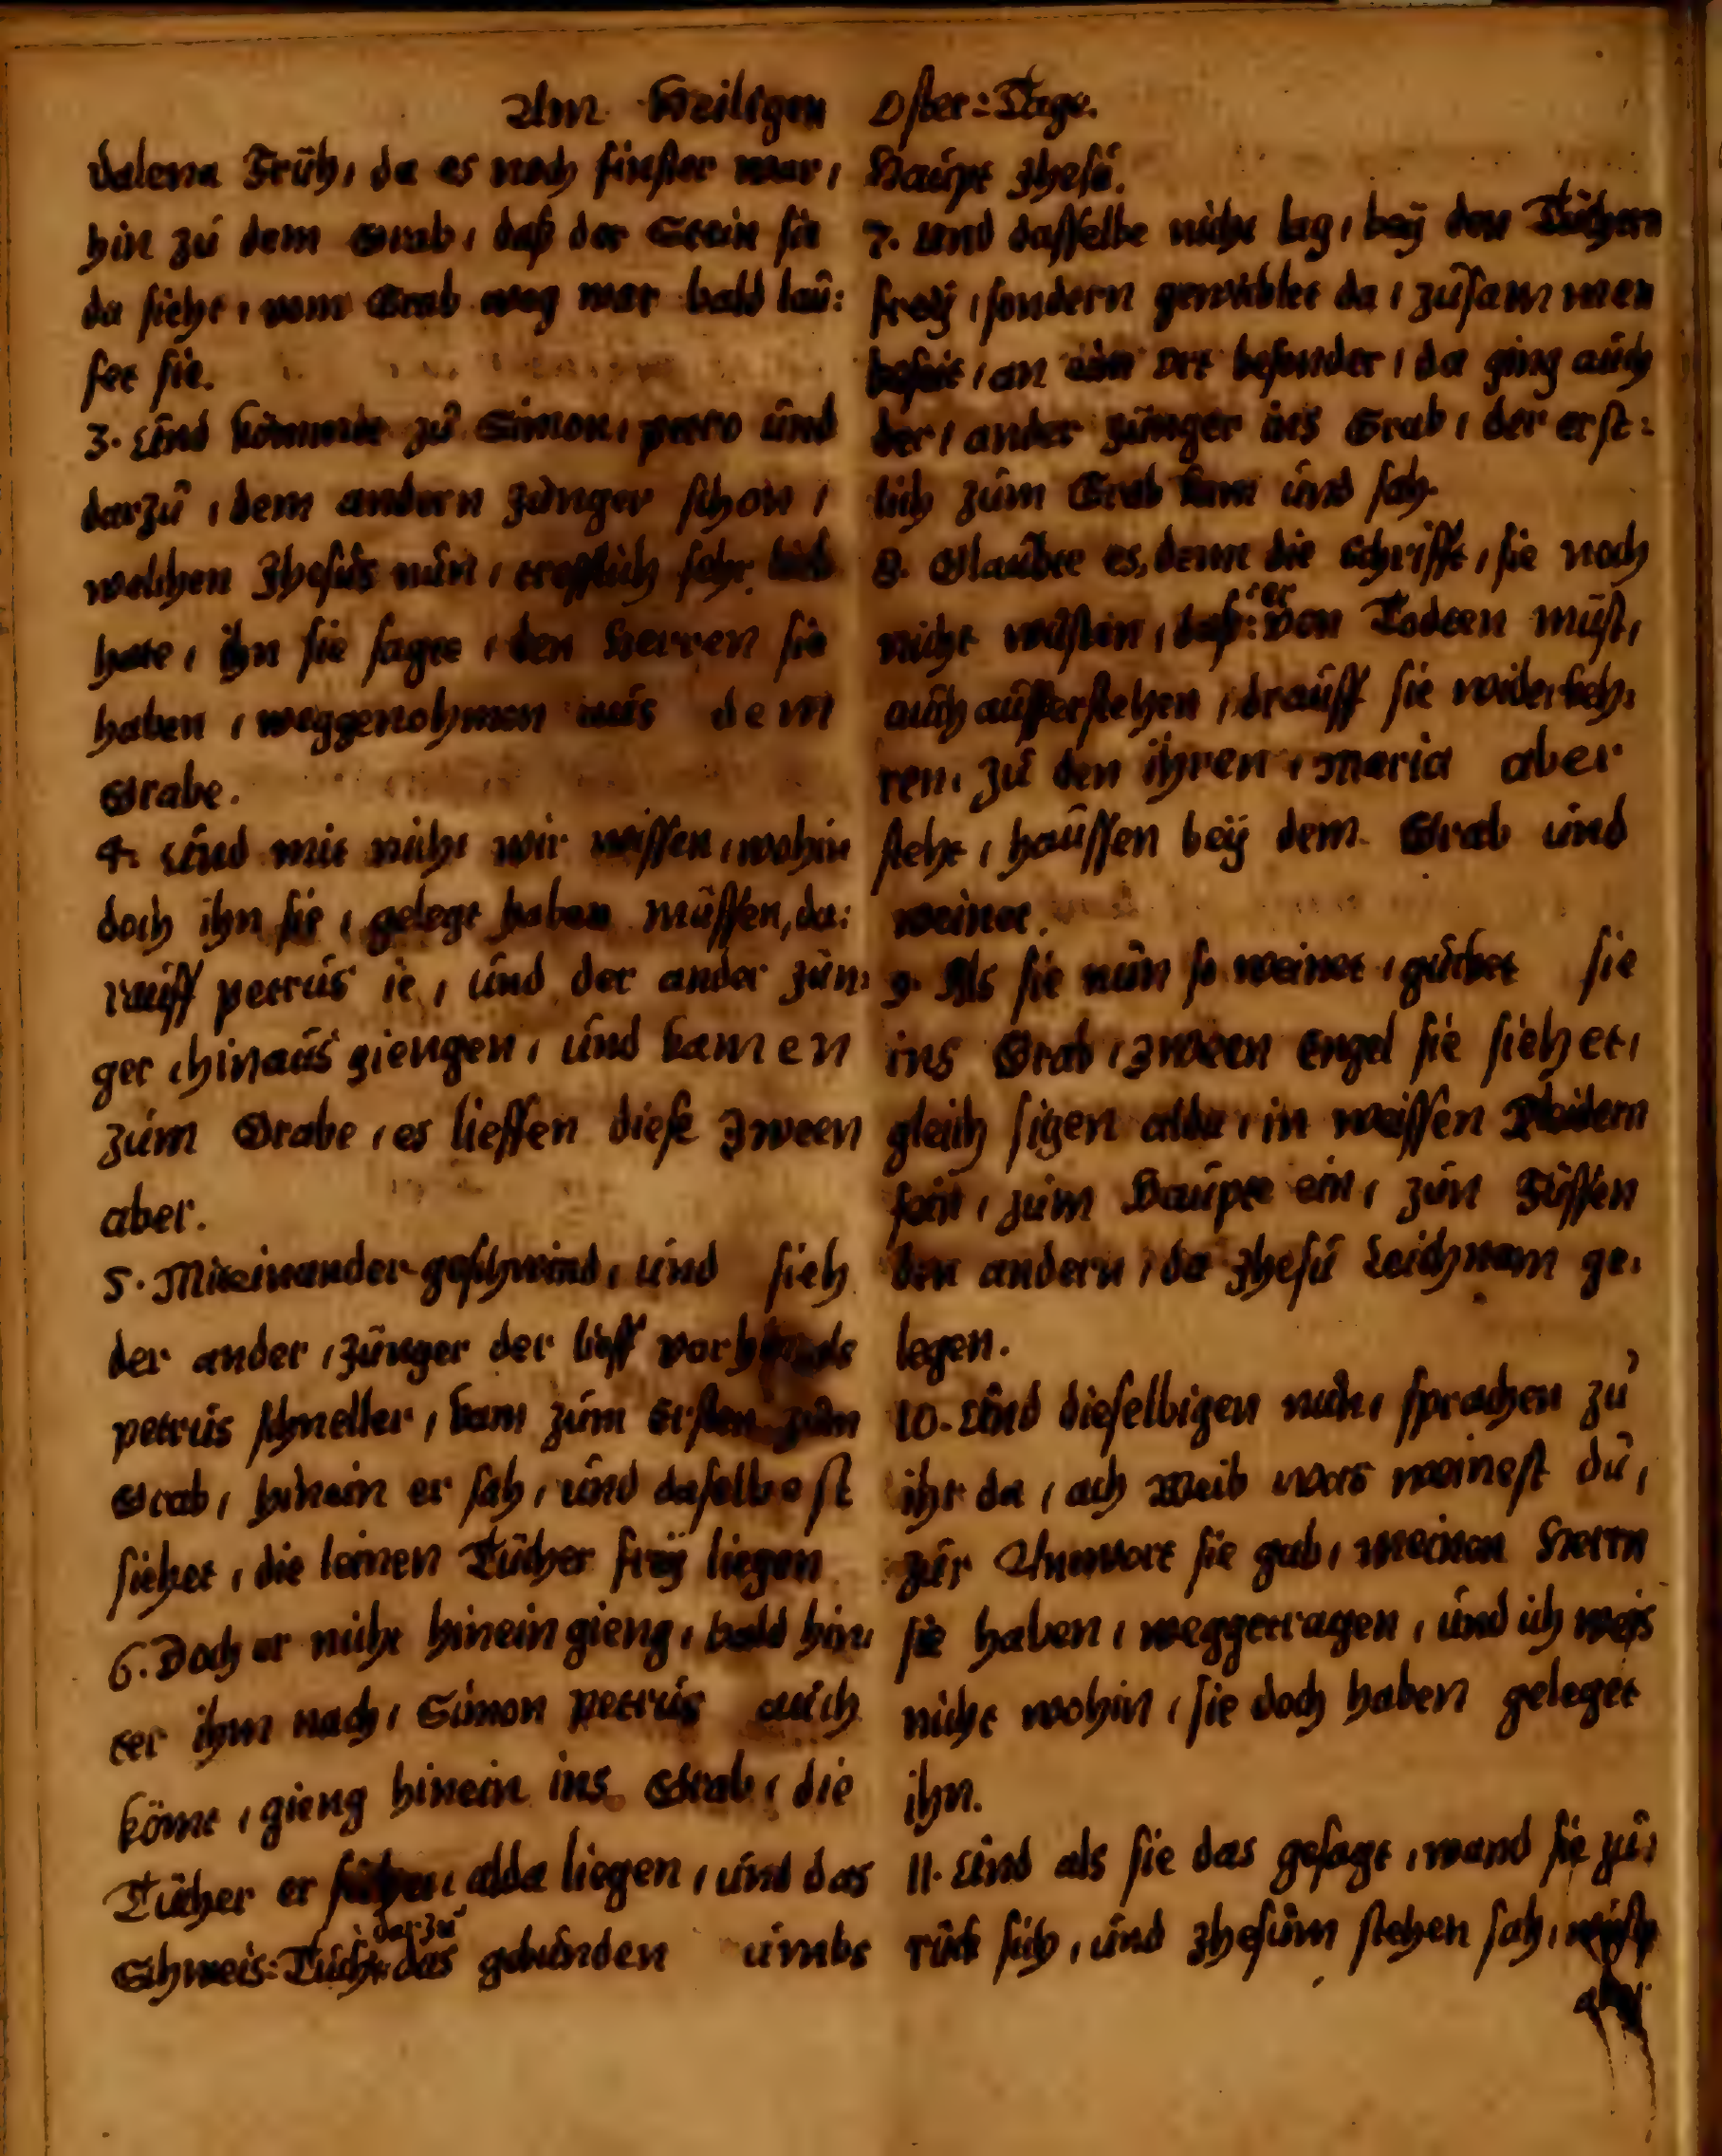 Am Heiligen Oster=Tage.
dalena Früh, da es noch finster war,
hin zu dem Grab, daß der Stein sie
da sieht, vom Grab weg war bald lau:
fet sie.
3. Und kömmte zu Simon, petro und
darzu, dem andern Jünger schon,
welchen Jhesus nun, trefflich sehr lieb
hate, ihn sie sagte, den Herren sie
haben, weggenohmen aus dem
Grabe.
4. Und mit nicht wir wissen, wohin
doch ihn sie, gelegt haben müssen, da:
rauff petrus ie, und der ander Jün:
ger, hinaus giengen, und kamen
zum Grabe, es lieffen diese zween
aber.
5. Miteinander geschwind, und sieh
der ander, Jünger der lieff
petrus schneller, kam zum Ersten zum
Grab, hinein er sah, und daselbest
siehet, die leinen Tücher frey liegen
6. Doch er nicht hinein gieng, bald hin:
ter ihm nach, Simon petrus auch
kömt, gieng hinein ins Grab, die
Tücher er alda liegen, und das
Schweis=Tuch darzu das gebunden umbs
Haupt Jhesu.
7. Und dasselbe nicht lag, bey den Tüchern
frey, sondern gewicklet da, zusammen
beseit, an ein ort besonder, da ging auch
der, ander Jünger ins Grab, der erst:
lich zum Grab kam und sah.
8. Glaubte es, denn die Schrifft, sie noch
nicht wusten, daß er von Todten müst,
auch aufferstehen, drauff sie widerkeh:
ren, zu den ihren, Maria aber
steht, haussen bey dem Grab und
weinet.
9. Als sie nun so weinet, gucket sie
ins Grab, zween Engel sie siehet,
gleich sitzen alda, in weissen Kleidern
fein, zum Haupte ein, zun Füssen
den andern, da Jhesu Leichnam ge:
legen.
10. Und dieselbigen nun, sprachen zu
ihr da, ach Weib was weinest du,
zur Antwort sie gab, meinen Herrn
sie haben, weggetragen, und ich weis
nicht wohin, sie doch haben geleget
ihn.
11. Und als sie das gesagt, wand sie zu:
rück sich, und Jhesum stehen sah, wuste
aber